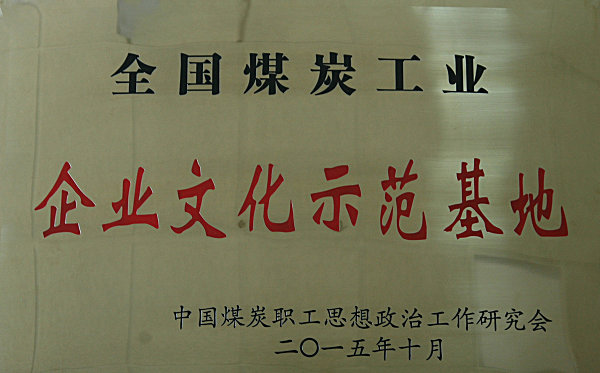 全国煤炭工业
企业文化示范基地
中国煤炭职工思想政治工作研究会
二〇一五年十月